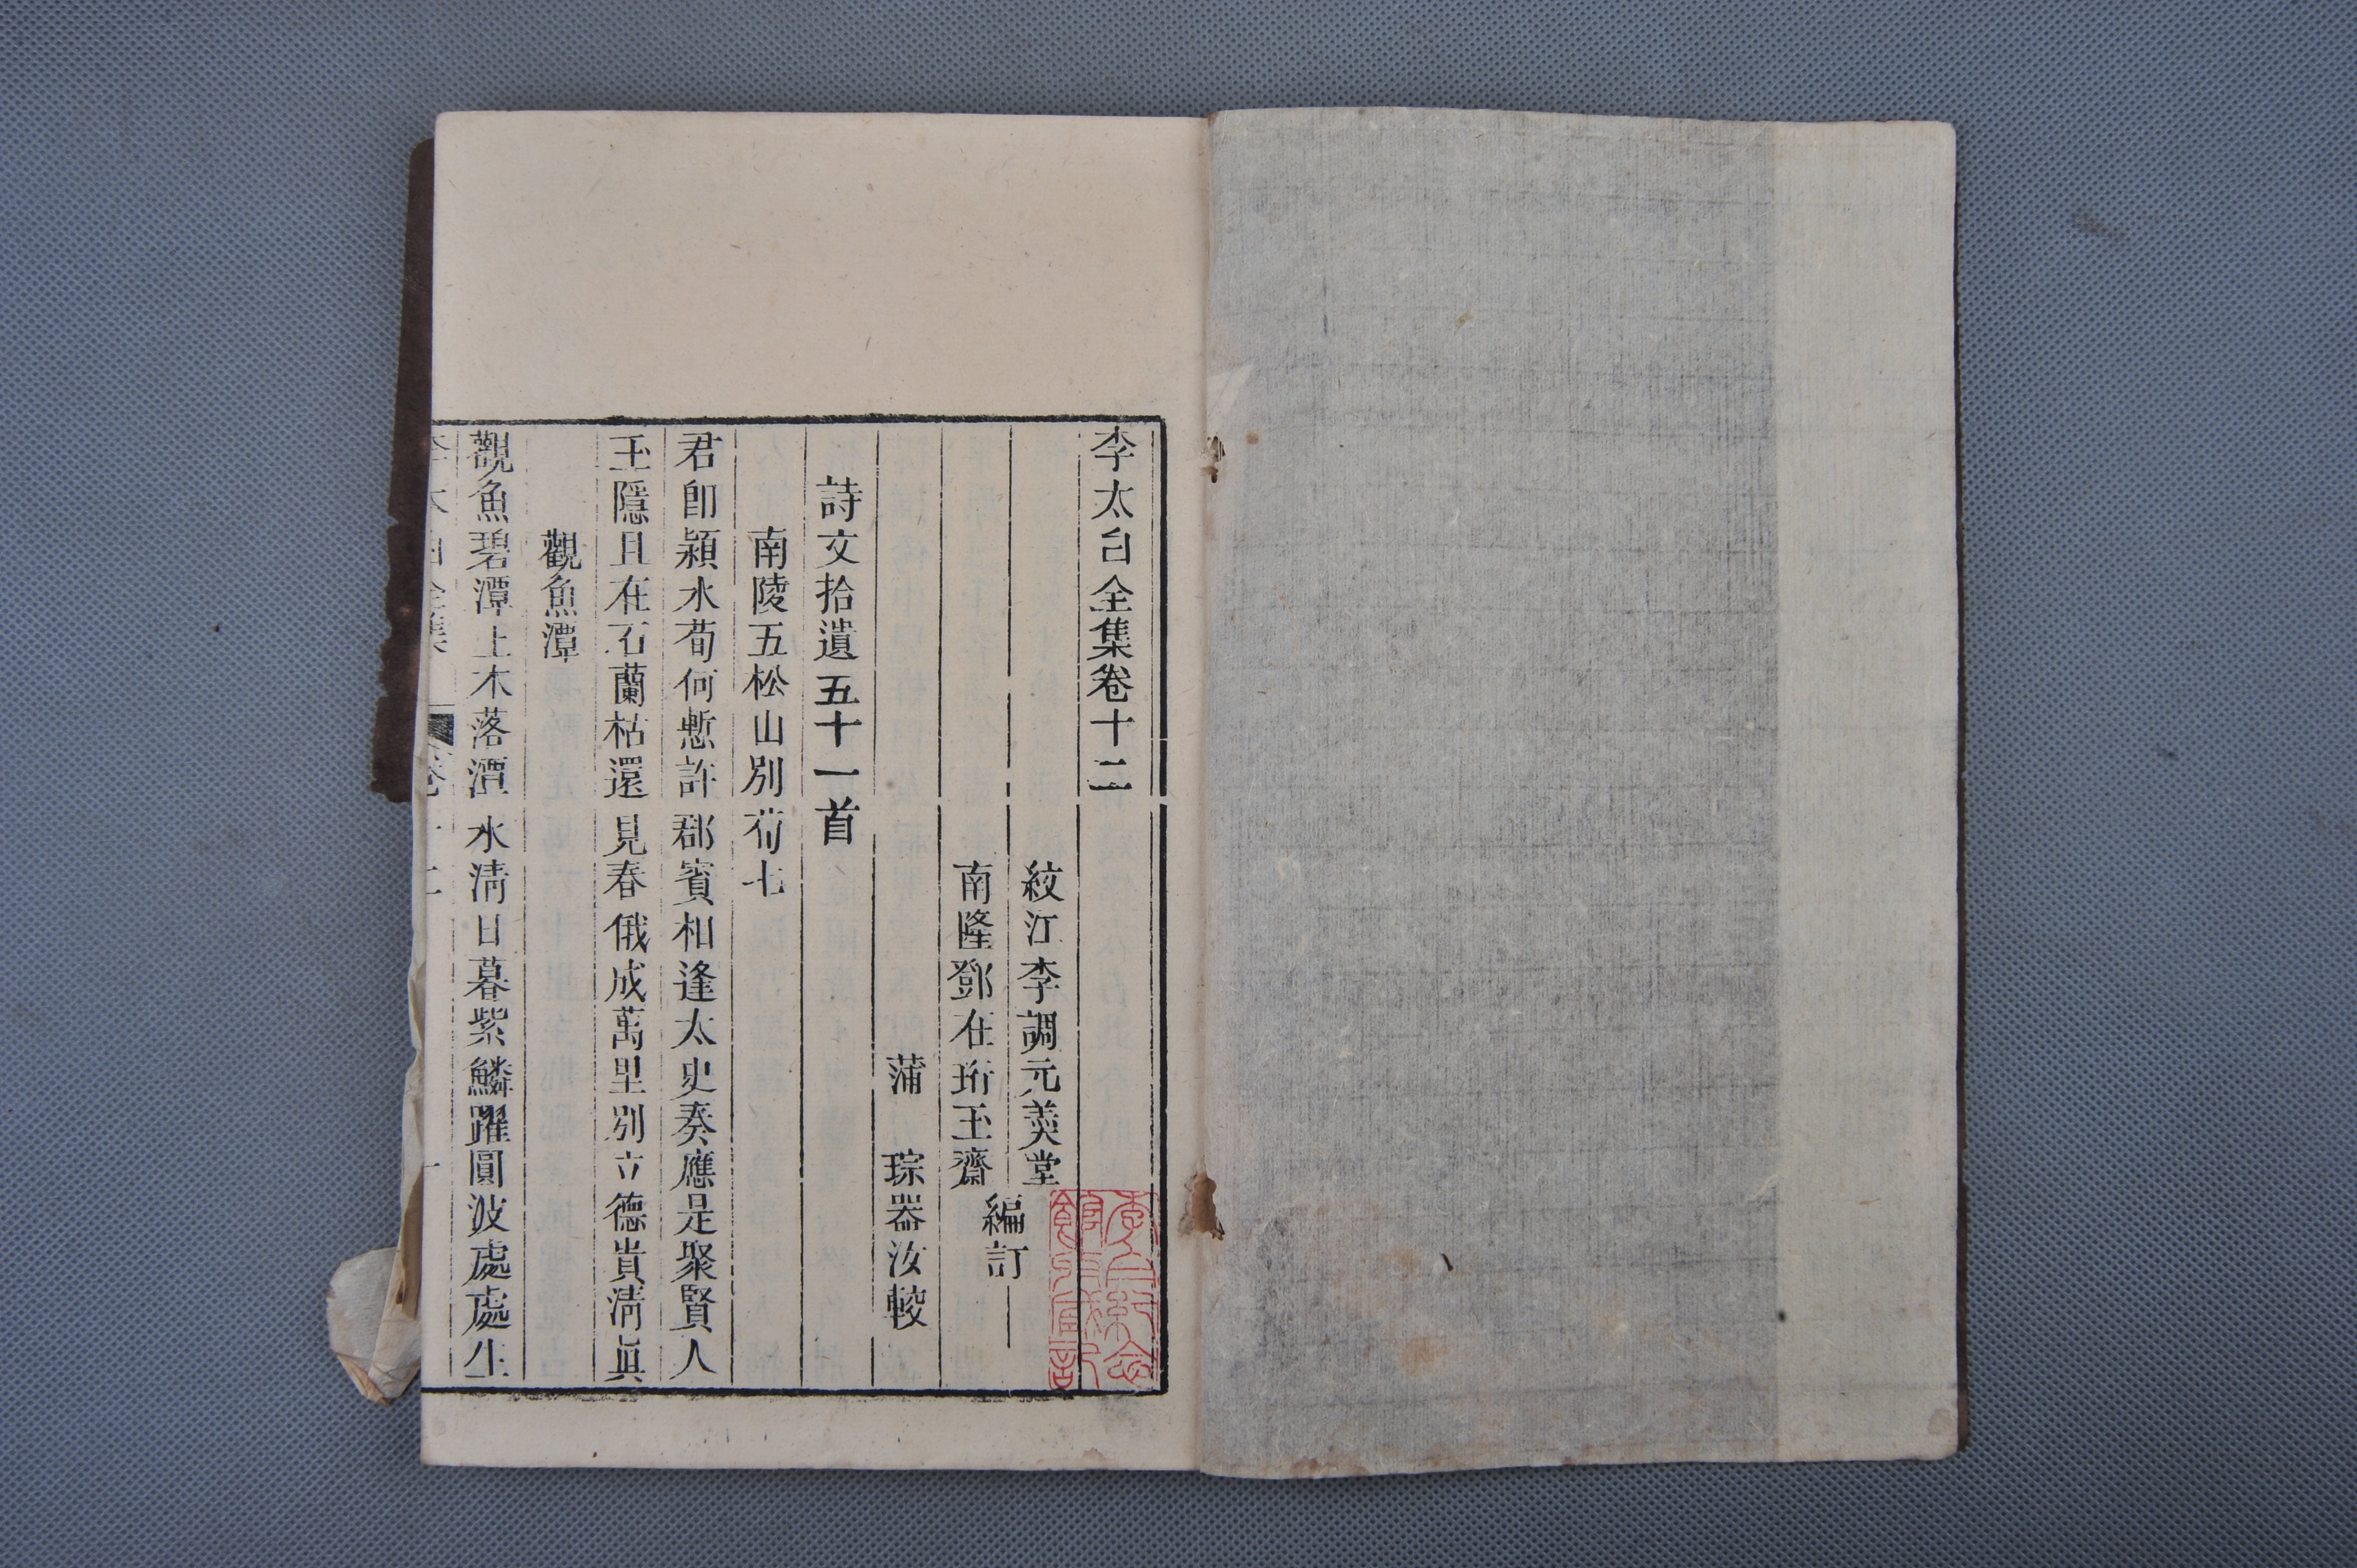 李太白全集卷十二
紋江李調元羮堂
南隆鄧在珩玉齋
編訂
蒲　琮器汝較
詩文拾遺五十一首
南陵五松山別荀七
君卽潁水荀何慙許郡賓相逢太史奏應是聚賢人
玉隱且在石蘭枯還見春俄成萬里別立德貴淸眞
觀魚潭
觀魚碧潭上木落潭水淸日暮紫鱗躍圓波處處生
李太白全集
卷十二
一